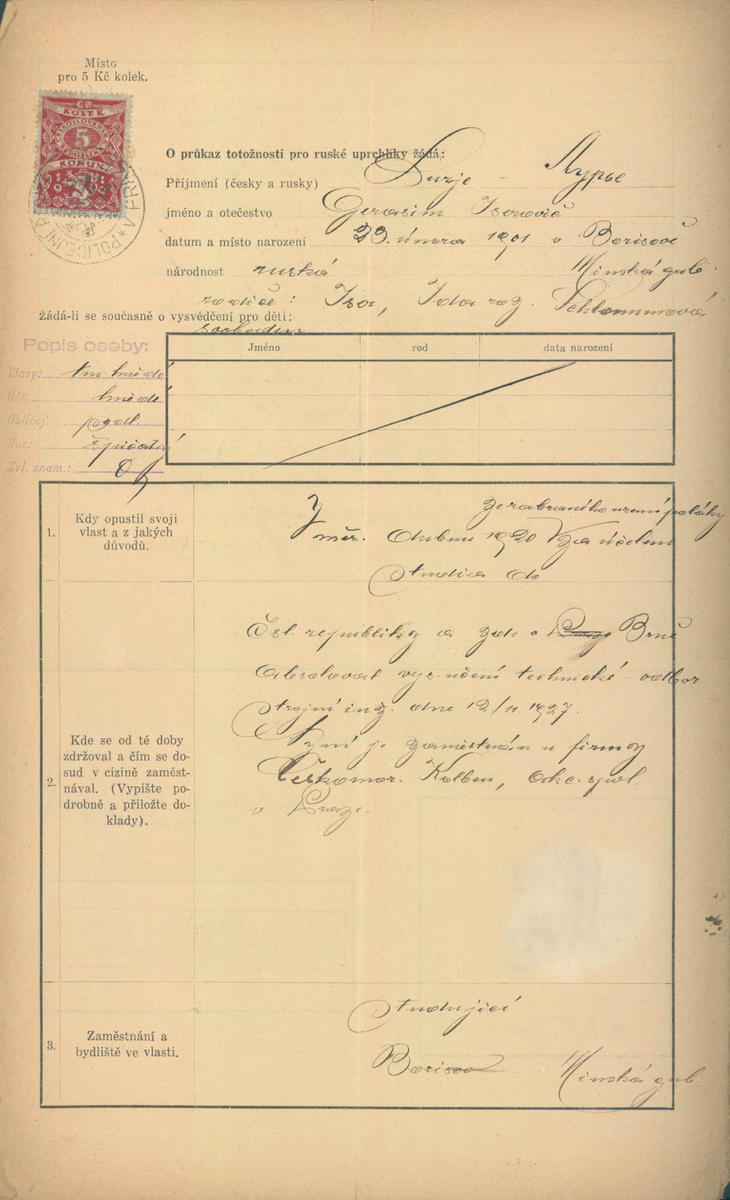 Místo
pro 5 Kč kolek.
KOLEK
5
KORUN
O průkaz totožnosti pro ruské uprchlíky žádá:
Příjmení (česky a rusky) Lurje - Лурье
jméno a otečestvo Gerasim Isorovič
datum a místo narození 23. února 1901 v Borisově
národnost ruská Minská gub.
rodiče: Isor, Ida roz.
Žádá-li se současně o vysvědčení pro děti:
svoboden
Popis osoby:
Vlasy: tm. hnědé
Oči: hnědé
Obličej: podl.
Nos: špičatý
Zvl. znam.:
Jméno rod data narození
1. Kdy opustil svoji vlast a z jakých důvodů.
ze zabraného území poláky
V měs. dubnu 1920 za účelem
studia do
2. Kde se od té doby zdržoval a čím se dosud v cizině zaměstnával. (Vypište podrobně a přiložte doklady).
Čsl. republiky a zde v Praze Brně
absolvoval vys. učení technické - odbor
strojní inž. dne 12/11 1927.
Nyní je zaměstnán u firmy
Českomor. Kolben, akc. spol.
v Praze.
3. Zaměstnání a bydliště ve vlasti.
studující
Borisov Minská gub